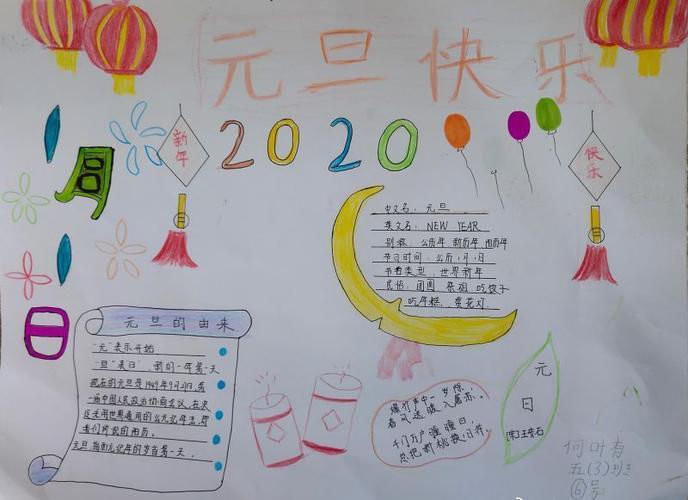 元旦快乐
新年
2020
快乐
1月
1日
中文名：元旦
英文名：NEW YEAR
别称：公历年 新历年 阳历年
节日时间：公历1月1日
节日类型：世界新年
民俗：团圆 祭祖 吃饺子
吃年糕，赏花灯
元旦的由来
"元"表示开始
"旦"表"日"，新的一年第一天
现在的元旦是1949年9月21日，第
一届中国人民政治协商会议，在决
定采用世界通用的公元纪年法，即
我们所说的阳历。
元旦，指公元记年的岁首第一天。
爆竹声中一岁除，
春风送暖入屠苏。
千门万户曈曈日，
总把新桃换旧符。
元
日
[宋]王安石
何叶有
五(3)班
⑥号